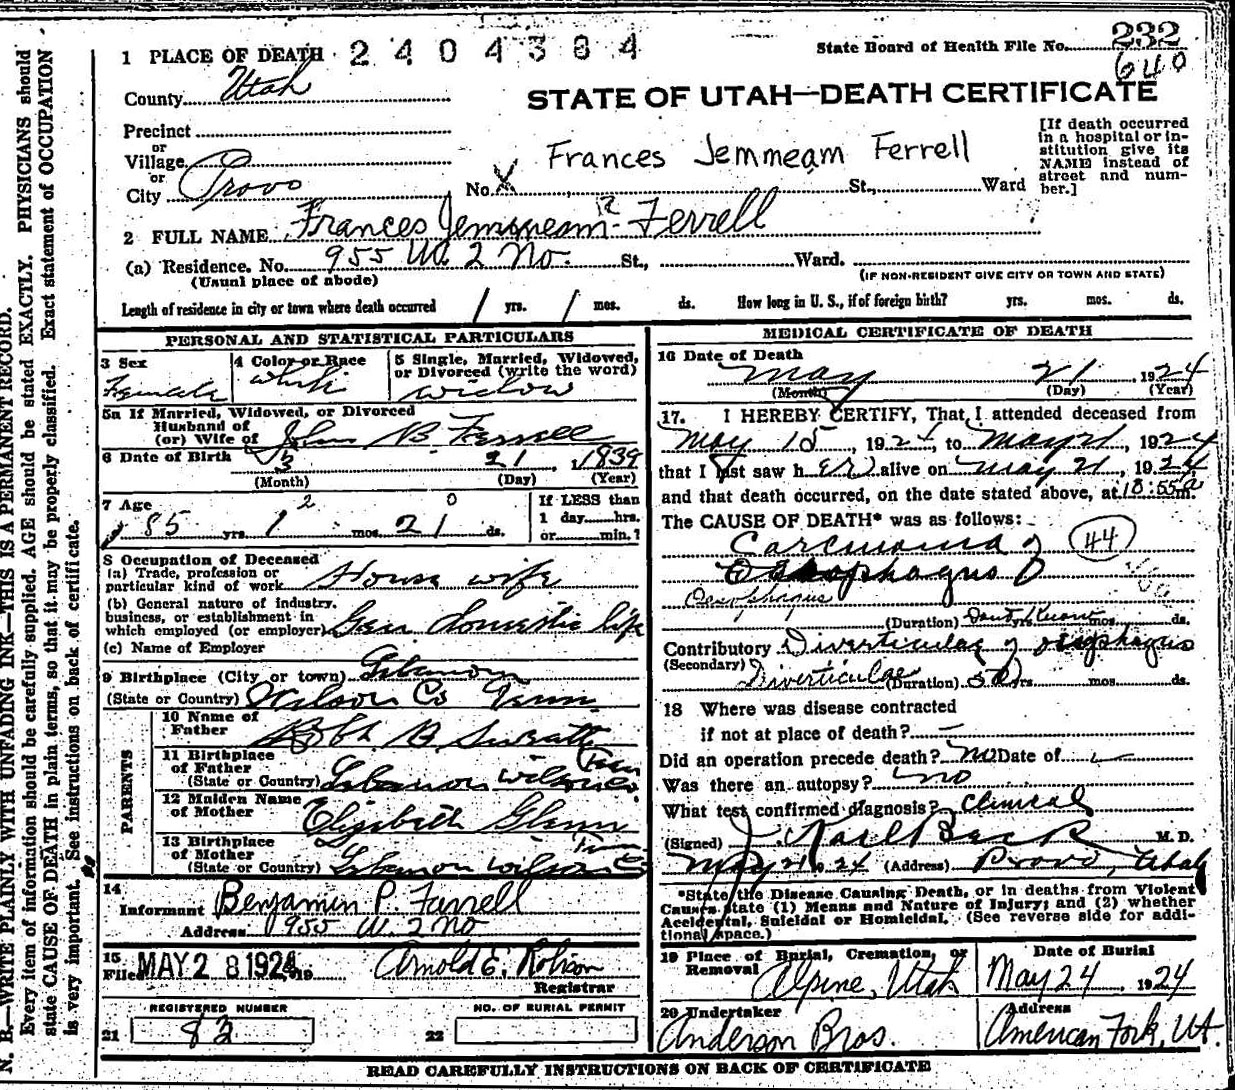 1 PLACE OF DEATH 2404384
State Board of Health File No. 232
640
County Utah
STATE OF UTAH—DEATH CERTIFICATE
Precinct
or
Village
or
City Provo
No. X St., Ward
Frances Jemmeam Ferrell
[If death occurred
in a hospital or in-
stitution give its
NAME instead of
street and num-
ber.]
2 FULL NAME Frances Jemmeam Ferrell
(a) Residence. No. 955 W. 2 No. St., Ward.
(Usual place of abode)
(IF NON-RESIDENT GIVE CITY OR TOWN AND STATE)
Length of residence in city or town where death occurred 1 yrs. 1 mos. ds. How long in U. S., if of foreign birth? yrs. mos. ds.
PERSONAL AND STATISTICAL PARTICULARS
3 Sex Female
4 Color or Race white
5 Single, Married, Widowed, or Divorced (write the word) widow
5a If Married, Widowed, or Divorced
Husband of
(or) Wife of John B Ferrell
6 Date of Birth 3 21, 1839
(Month) (Day) (Year)
7 Age 2 0
85 yrs. 1 mos. 21 ds.
If LESS than
1 day......hrs.
or......min.?
8 Occupation of Deceased
(a) Trade, profession or
particular kind of work House wife
(b) General nature of industry,
business, or establishment in
which employed (or employer) Gen. domestic life
(c) Name of Employer
9 Birthplace (City or town) Lebanon
(State or Country) Wilson Co Tenn.
PARENTS
10 Name of
Father Robt. B.
11 Birthplace
of Father Tenn
(State or Country) Lebanon Wilson Co.
12 Maiden Name
of Mother Elizabeth Glenn
13 Birthplace
of Mother Tenn
(State or Country) Lebanon Wilson Co
14
Informant Benjamin P. Farrell
Address 955 W. 2 No
15
Filed MAY 28 1924, 19
Arnold E. Robison
Registrar
REGISTERED NUMBER
21 83
NO. OF BURIAL PERMIT
22
MEDICAL CERTIFICATE OF DEATH
16 Date of Death
May 21, 1924
(Month) (Day) (Year)
17. I HEREBY CERTIFY, That I attended deceased from
May 15, 1924, to May 21, 1924
that I last saw her alive on May 21, 1924
and that death occurred, on the date stated above, at 10:55 a m.
The CAUSE OF DEATH* was as follows:
Carcinoma of 44
Oesophagus
Oesophagus
(Duration) Dont Know yrs. mos. ds.
Contributory Diverticulae of oesophagus
(Secondary) Diverticulae (Duration) 50 yrs. mos. ds.
18 Where was disease contracted
if not at place of death? —
Did an operation precede death? No Date of —
Was there an autopsy? no
What test confirmed diagnosis? Clinical
(Signed) J. Karl Beck M. D.
May 21, 24 (Address) Provo, Utah
*State the Disease Causing Death, or in deaths from Violent
Causes state (1) Means and Nature of Injury; and (2) whether
Accidental, Suicidal or Homicidal. (See reverse side for addi-
tional space.)
19 Place of Burial, Cremation, or
Removal Alpine, Utah
Date of Burial
May 24, 1924
20 Undertaker
Anderson Bros.
Address
American Fork, Ut.
READ CAREFULLY INSTRUCTIONS ON BACK OF CERTIFICATE
N. B.—WRITE PLAINLY WITH UNFADING INK—THIS IS A PERMANENT RECORD.
Every item of information should be carefully supplied. AGE should be stated EXACTLY. PHYSICIANS should
state CAUSE OF DEATH in plain terms, so that it may be properly classified. Exact statement of OCCUPATION
is very important. See instructions on back of certificate.